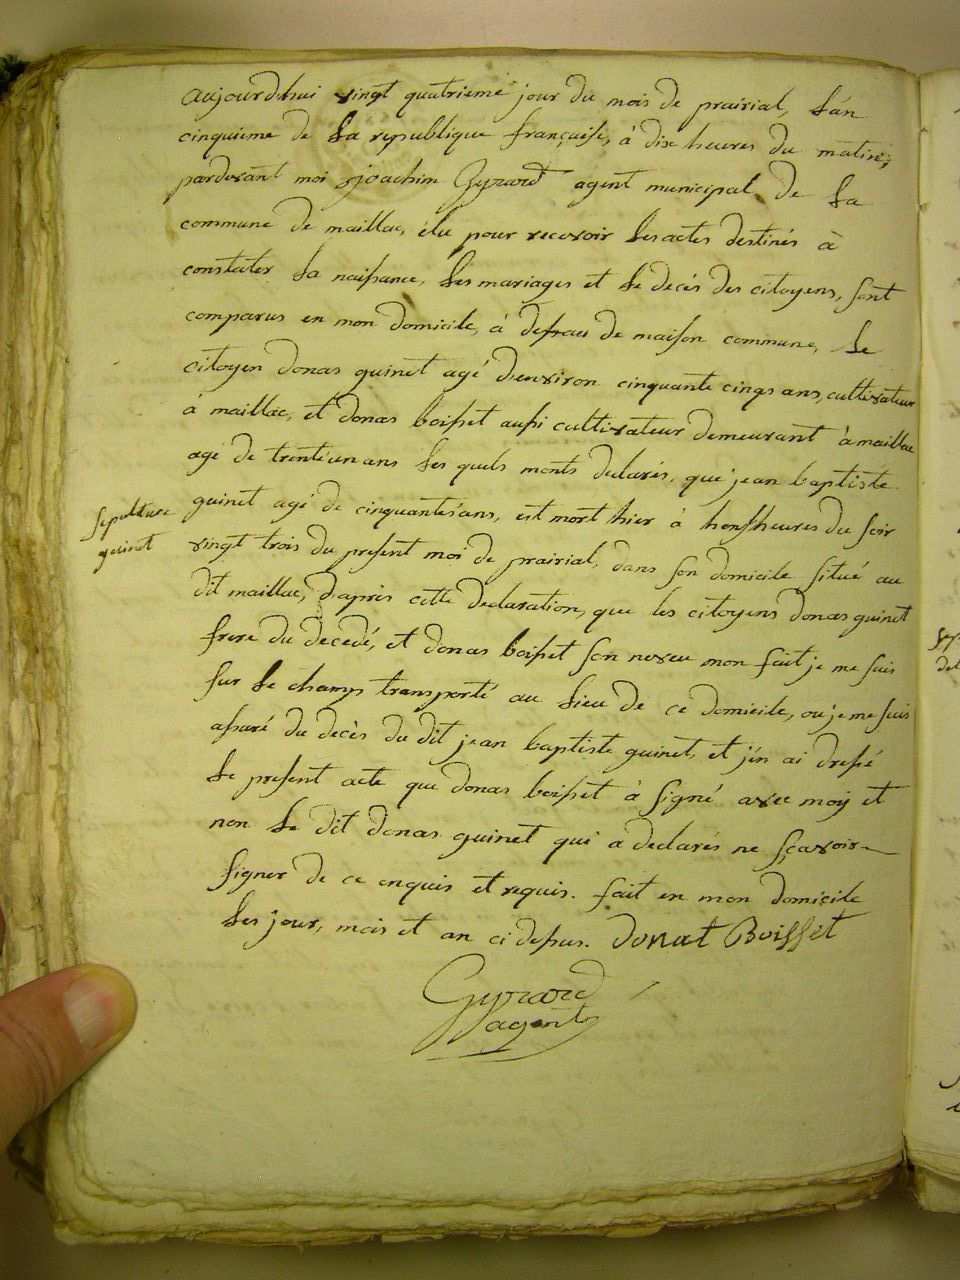 aujourdhui vingt quatrieme jour du mois de prairial, l'an
cinquieme de la republique françaîse, à dix heures du matin,
pardevant moi joachim Gyrard agent municipal de la
commune de maillac, élu pour recevoir les actes destinés à
constater la naissance, les mariages et le décés des citoyens, sont
comparus en mon domicile, à defeau de maison commune, le
citoyen donas guinet agé d'environ cinquante cinqs ans, cultivateur
à maillac, et donas boisset aussi cultivateur demeurant à maillac
agé de trente un ans les quels monts declarés, que jean baptiste
guinet agé de cinquantes ans, est mort hier à honsheures du soir
vingt trois du present moi de prairial, dans son domicile situé au
dit maillac, d'aprés cette declaration, que les citoyens donas guinet
frere du decedé, et donas boisset son neveu mon fait je me suis
sur le champs transporté au lieu de ce domicile, ou je me suis
assuré du decès du dit jean baptiste guinet, et j'en ai dressé
le present acte que donas boisset à signé avec moy et
non le dit donas guinet qui a declarés ne sçavoir
signer de ce enquis et requis. fait en mon domicile
les jour, mois et an ci dessus. Donat Boisset
Gyrard
agent
sepulture
guinet